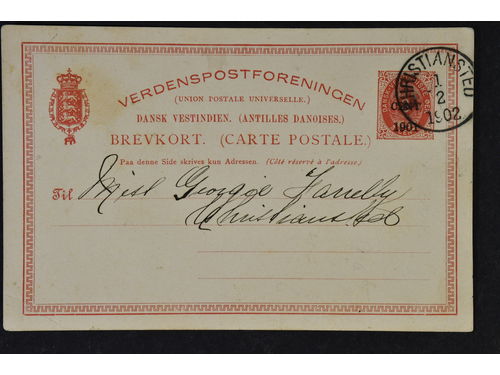 VERDENSPOSTFORENINGEN
(UNION POSTALE UNIVERSELLE.)
DANSK VESTINDIEN. (ANTILLES DANOISES.)
BREVKORT. (CARTE POSTALE.)
Paa denne Side skrives kun Adressen. (Côté réservé à l'adresse.)
CHRISTIANSTED
1
2
1902
1901
Til Miss Georgie Farrelly
Christiansted